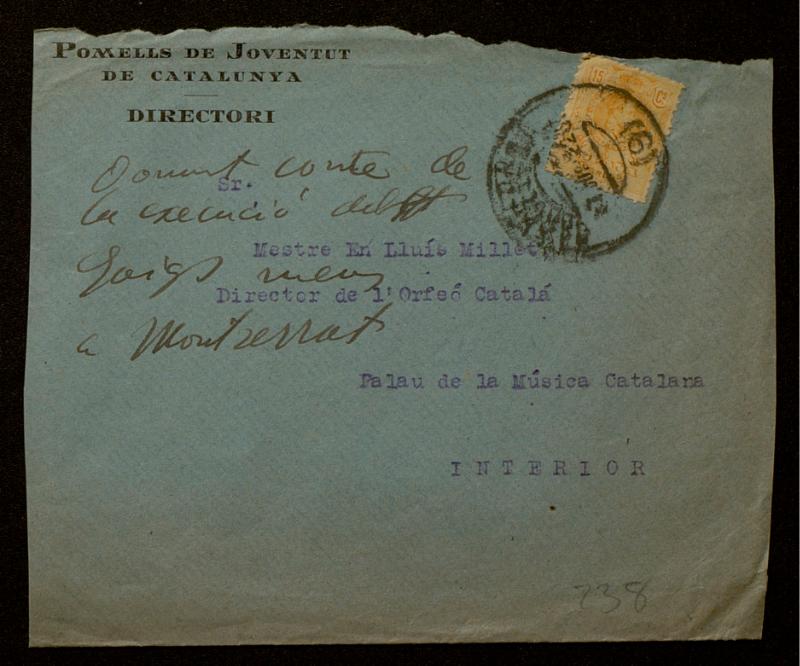 POMELLS DE JOVENTUT
DE CATALUNYA
DIRECTORI
15 Cs
(6)
donant conte de
Sr.
la execució dels
Mestre En Lluís Millet
Goigs meus
Director de l'Orfeó Catalá
a Montserrat
Palau de la Música Catalana
INTERIOR
238